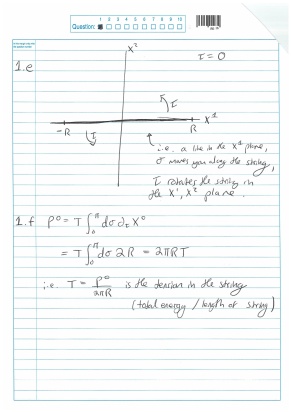 Question: 1 2 3 4 5 6 7 8 9 10
1.e
X²
τ = 0
τ
-R
R
X¹
τ
i.e. a line in the X¹ plane,
σ moves you along the string,
τ rotates the string in
the X¹, X² plane.
1.f P⁰ = T ∫₀^π dσ ∂_τ X⁰
= T ∫₀^π dσ 2R = 2πRT
i.e. T = P⁰/2πR is the tension in the string
(total energy / length of string)